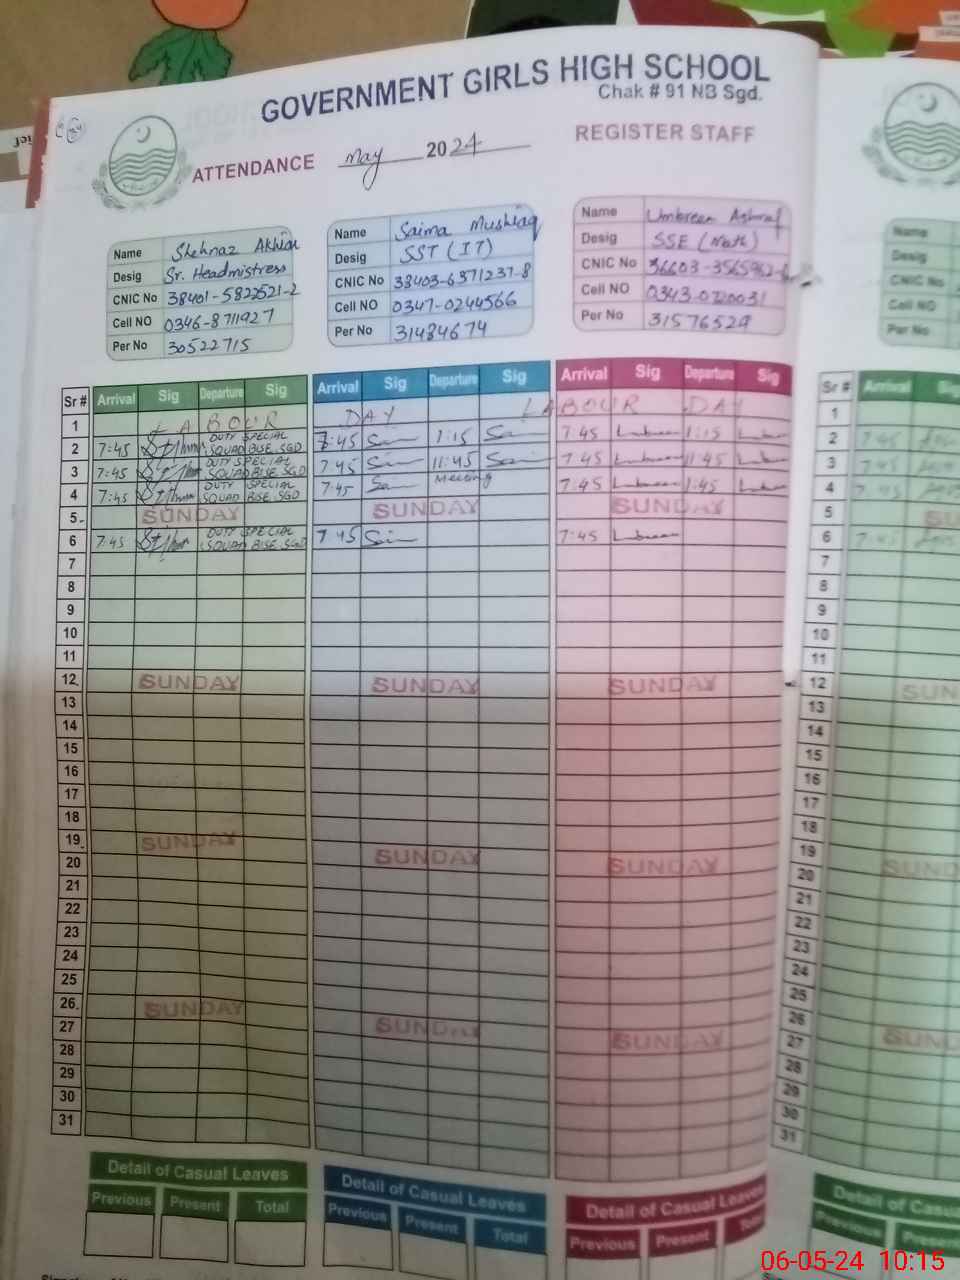 GOVERNMENT GIRLS HIGH SCHOOL
Chak # 91 NB Sgd.
ATTENDANCE May 2024 REGISTER STAFF
Name Shehnaz Akhtar
Desig Sr. Headmistress
CNIC No 38401-5822521-2
Cell NO 0346-8711927
Per No 30522715
Name Saima Mushtaq
Desig SST (IT)
CNIC No 38403-6371237-8
Cell NO 0347-0244566
Per No 31484674
Name Umbreen Ashraf
Desig SSE (Math)
CNIC No 36603-3565962-
Cell NO 0343-0720031
Per No 31576529
Name
Desig
CNIC No
Cell NO
Per No
Sr # Arrival Sig Departure Sig Arrival Sig Departure Sig Arrival Sig Departure Sig Sr # Arrival Sig
1 LABOUR DAY LABOUR DAY 1
2 7:45 DUTY SPECIAL SQUAD BISE SGD 7:45 1:15 7:45 1:15 2 7:45
3 7:45 DUTY SPECIAL SQUAD BISE SGD 7:45 11:45 7:45 11:45 3 7:45
4 7:45 DUTY SPECIAL SQUAD BISE SGD 7:45 Meeting 7:45 1:45 4
5 SUNDAY SUNDAY SUNDAY 5 SU
6 7:45 DUTY SPECIAL SQUAD BISE SGD 7:45 7:45 6 7:45
7 7
8 8
9 9
10 10
11 11
12 SUNDAY SUNDAY SUNDAY 12 SUN
13 13
14 14
15 15
16 16
17 17
18 18
19 SUNDAY 19
20 SUNDAY SUNDAY 20 SUND
21 21
22 22
23 23
24 24
25 25
26 SUNDAY 26
27 SUNDAY SUNDAY 27 SUND
28 28
29 29
30 30
31 31
Detail of Casual Leaves Detail of Casual Leaves Detail of Casual Leaves Detail
Previous Present Total Previous Present Total Previous Present Total Previous
06-05-24 10:15